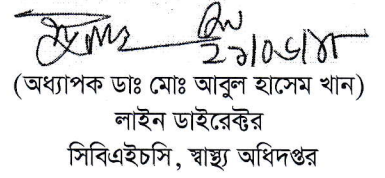 (অধ্যাপক ডাঃ মোঃ আবুল হাসেম খান)
লাইন ডাইরেক্টর
সিবিএইচসি, স্বাস্থ্য অধিদপ্তর